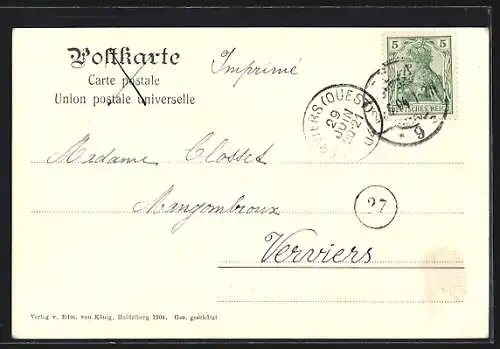 Postkarte
Carte postale
Union postale universelle
Imprimé
5 5
DEUTSCHES REICH
VERVIERS (OUEST)
29
JUIN
20-21
04
9
Madame Closset
Mangombroux
27
Verviers
Verlag v. Edm. von König, Heidelberg 1904. Ges. geschützt